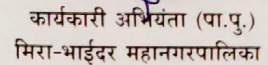 कार्यकारी अभियंता (पा.पु.)
मिरा-भाईंदर महानगरपालिका